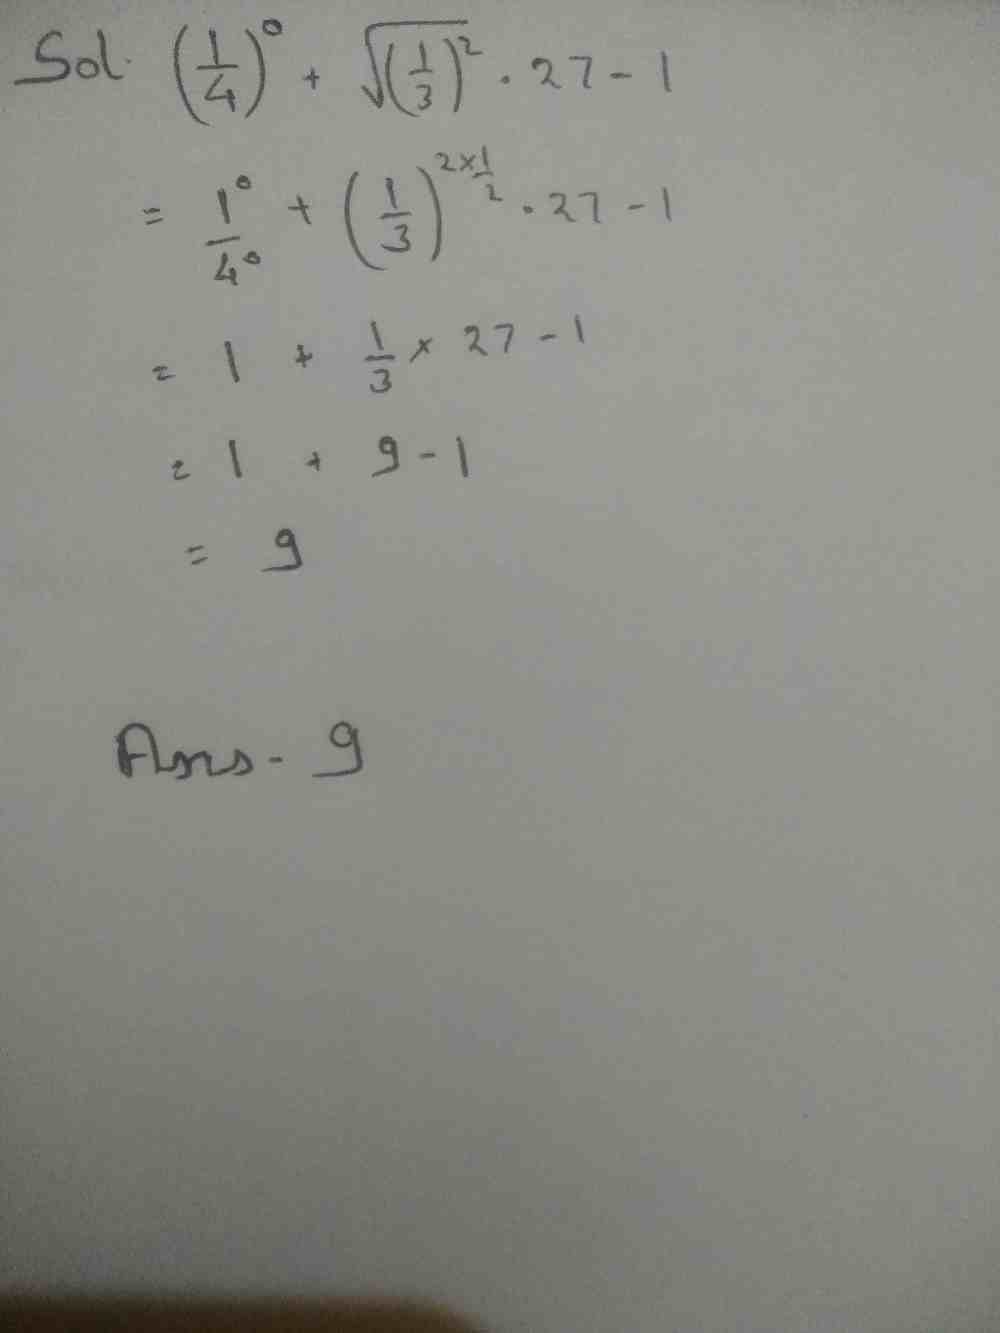 Sol. (1/4)⁰ + √(1/3)² · 27 - 1
= 1⁰/4⁰ + (1/3)^(2×1/2) · 27 - 1
= 1 + 1/3 × 27 - 1
= 1 + 9 - 1
= 9
Ans - 9